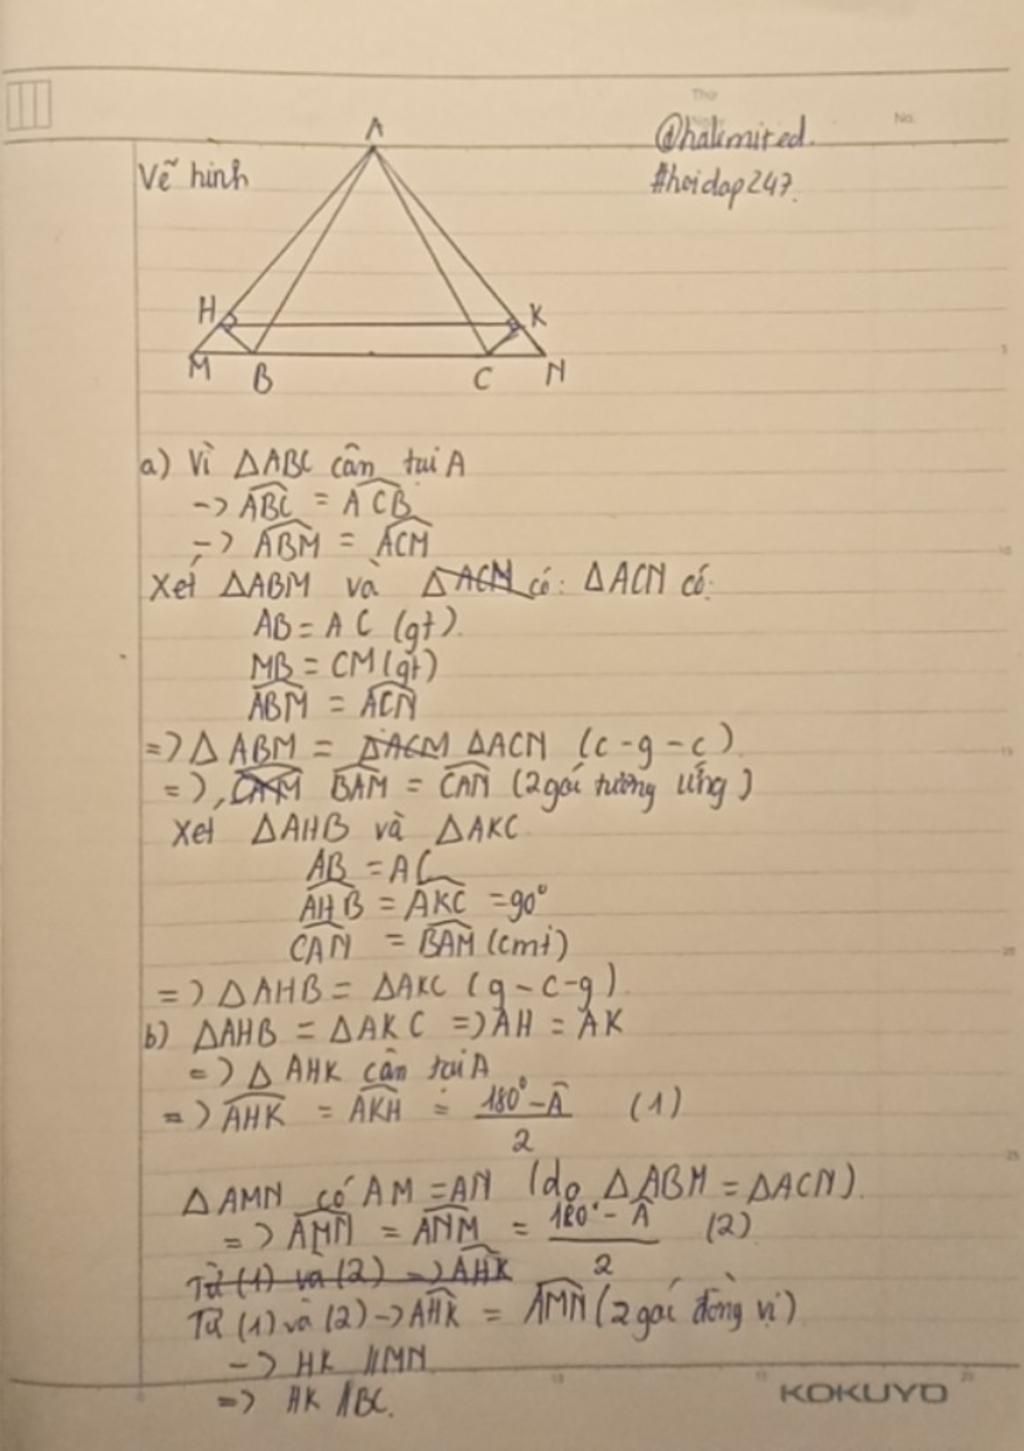 Thứ
No.
@halimited.
#hoidap247.
Vẽ hình
A
H
K
M
B
C
N
a) Vì ΔABC cân tại A
-> \widehat{ABC} = \widehat{ACB}
-> \widehat{ABM} = \widehat{ACM}
Xét ΔABM và ΔACN có: ΔACN có:
AB = AC (gt).
MB = CM (gt)
\widehat{ABM} = \widehat{ACN}
=> ΔABM = ΔACM ΔACN (c-g-c)
=> \widehat{CAM} \widehat{BAM} = \widehat{CAN} (2 goí tương ứng)
Xét ΔAHB và ΔAKC
AB = AC
\widehat{AHB} = \widehat{AKC} = 90°
\widehat{CAN} = \widehat{BAM} (cmt)
=> ΔAHB = ΔAKC (g-c-g).
b) ΔAHB = ΔAKC => AH = AK
=> ΔAHK cân tại A
=> \widehat{AHK} = \widehat{AKH} = \frac{180° - Â}{2} (1)
ΔAMN có AM = AN (do ΔABM = ΔACN).
=> \widehat{AMN} = \widehat{ANM} = \frac{180° - Â}{2} (2)
Từ (1) và (2) => \widehat{AHK}
Từ (1) và (2) -> \widehat{AHK} = \widehat{AMN} (2 goí đồng vị)
-> HK // MN
=> HK // BC.
KOKUYO